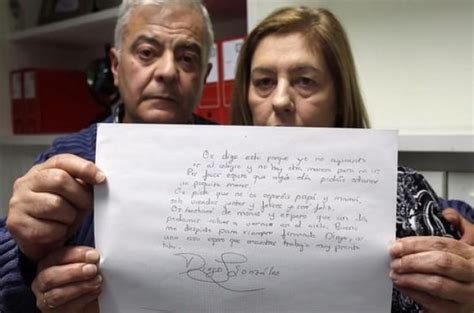 Os digo esto porque yo no aguanto
ir al colegio y no hay otra manera para no ir
Por favor espero que algún día podáis odiarme
un poquito menos.
Os pido que no os separéis papá y mamá,
solo viendoos juntos y felices yo seré feliz.
Os echaré de menos y espero que un día
podamos volver a vernos en el cielo. Bueno
me despido para siempre firmado Diego. a
una cosa espero que encuentres trabajo muy pronto
tata
Diego González